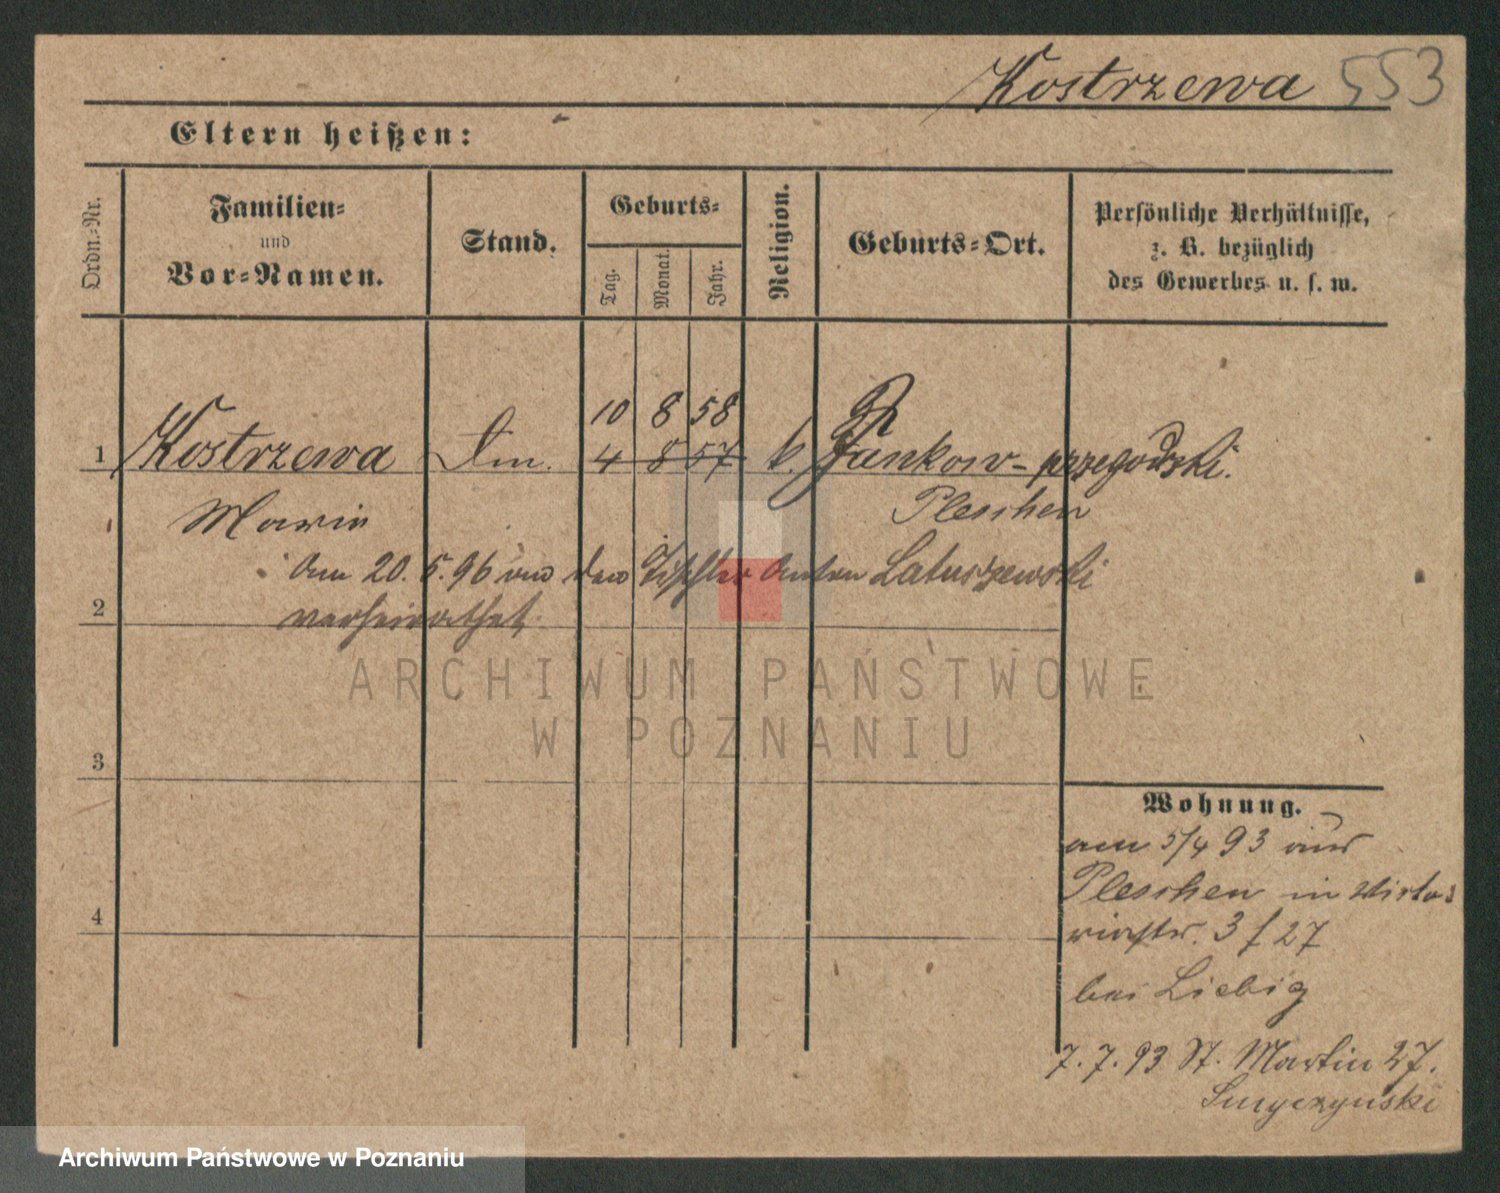 Kostrzewa 553
Eltern heißen:
Ordn.-Nr.
Familien-
und
Vor-Namen.
Stand.
Geburts-
Tag.
Monat.
Jahr.
Religion.
Geburts-Ort.
Persönliche Verhältnisse,
z. B. bezüglich
des Gewerbes u. s. w.
10 8 58
1 Kostrzewa 4 8 57 k. Fankow-
Marie Pleschen
am 20. 5. 96 den Tischler Anton Latuszewski
2 verheirathet
ARCHIWUM PAŃSTWOWE
W POZNANIU
3
Wohnung.
am 5/4 93 aus
Pleschen in Victo-
riastr. 3 f 27
4
bei Liebig
7. 7. 93 St. Martin 27.
Archiwum Państwowe w Poznaniu